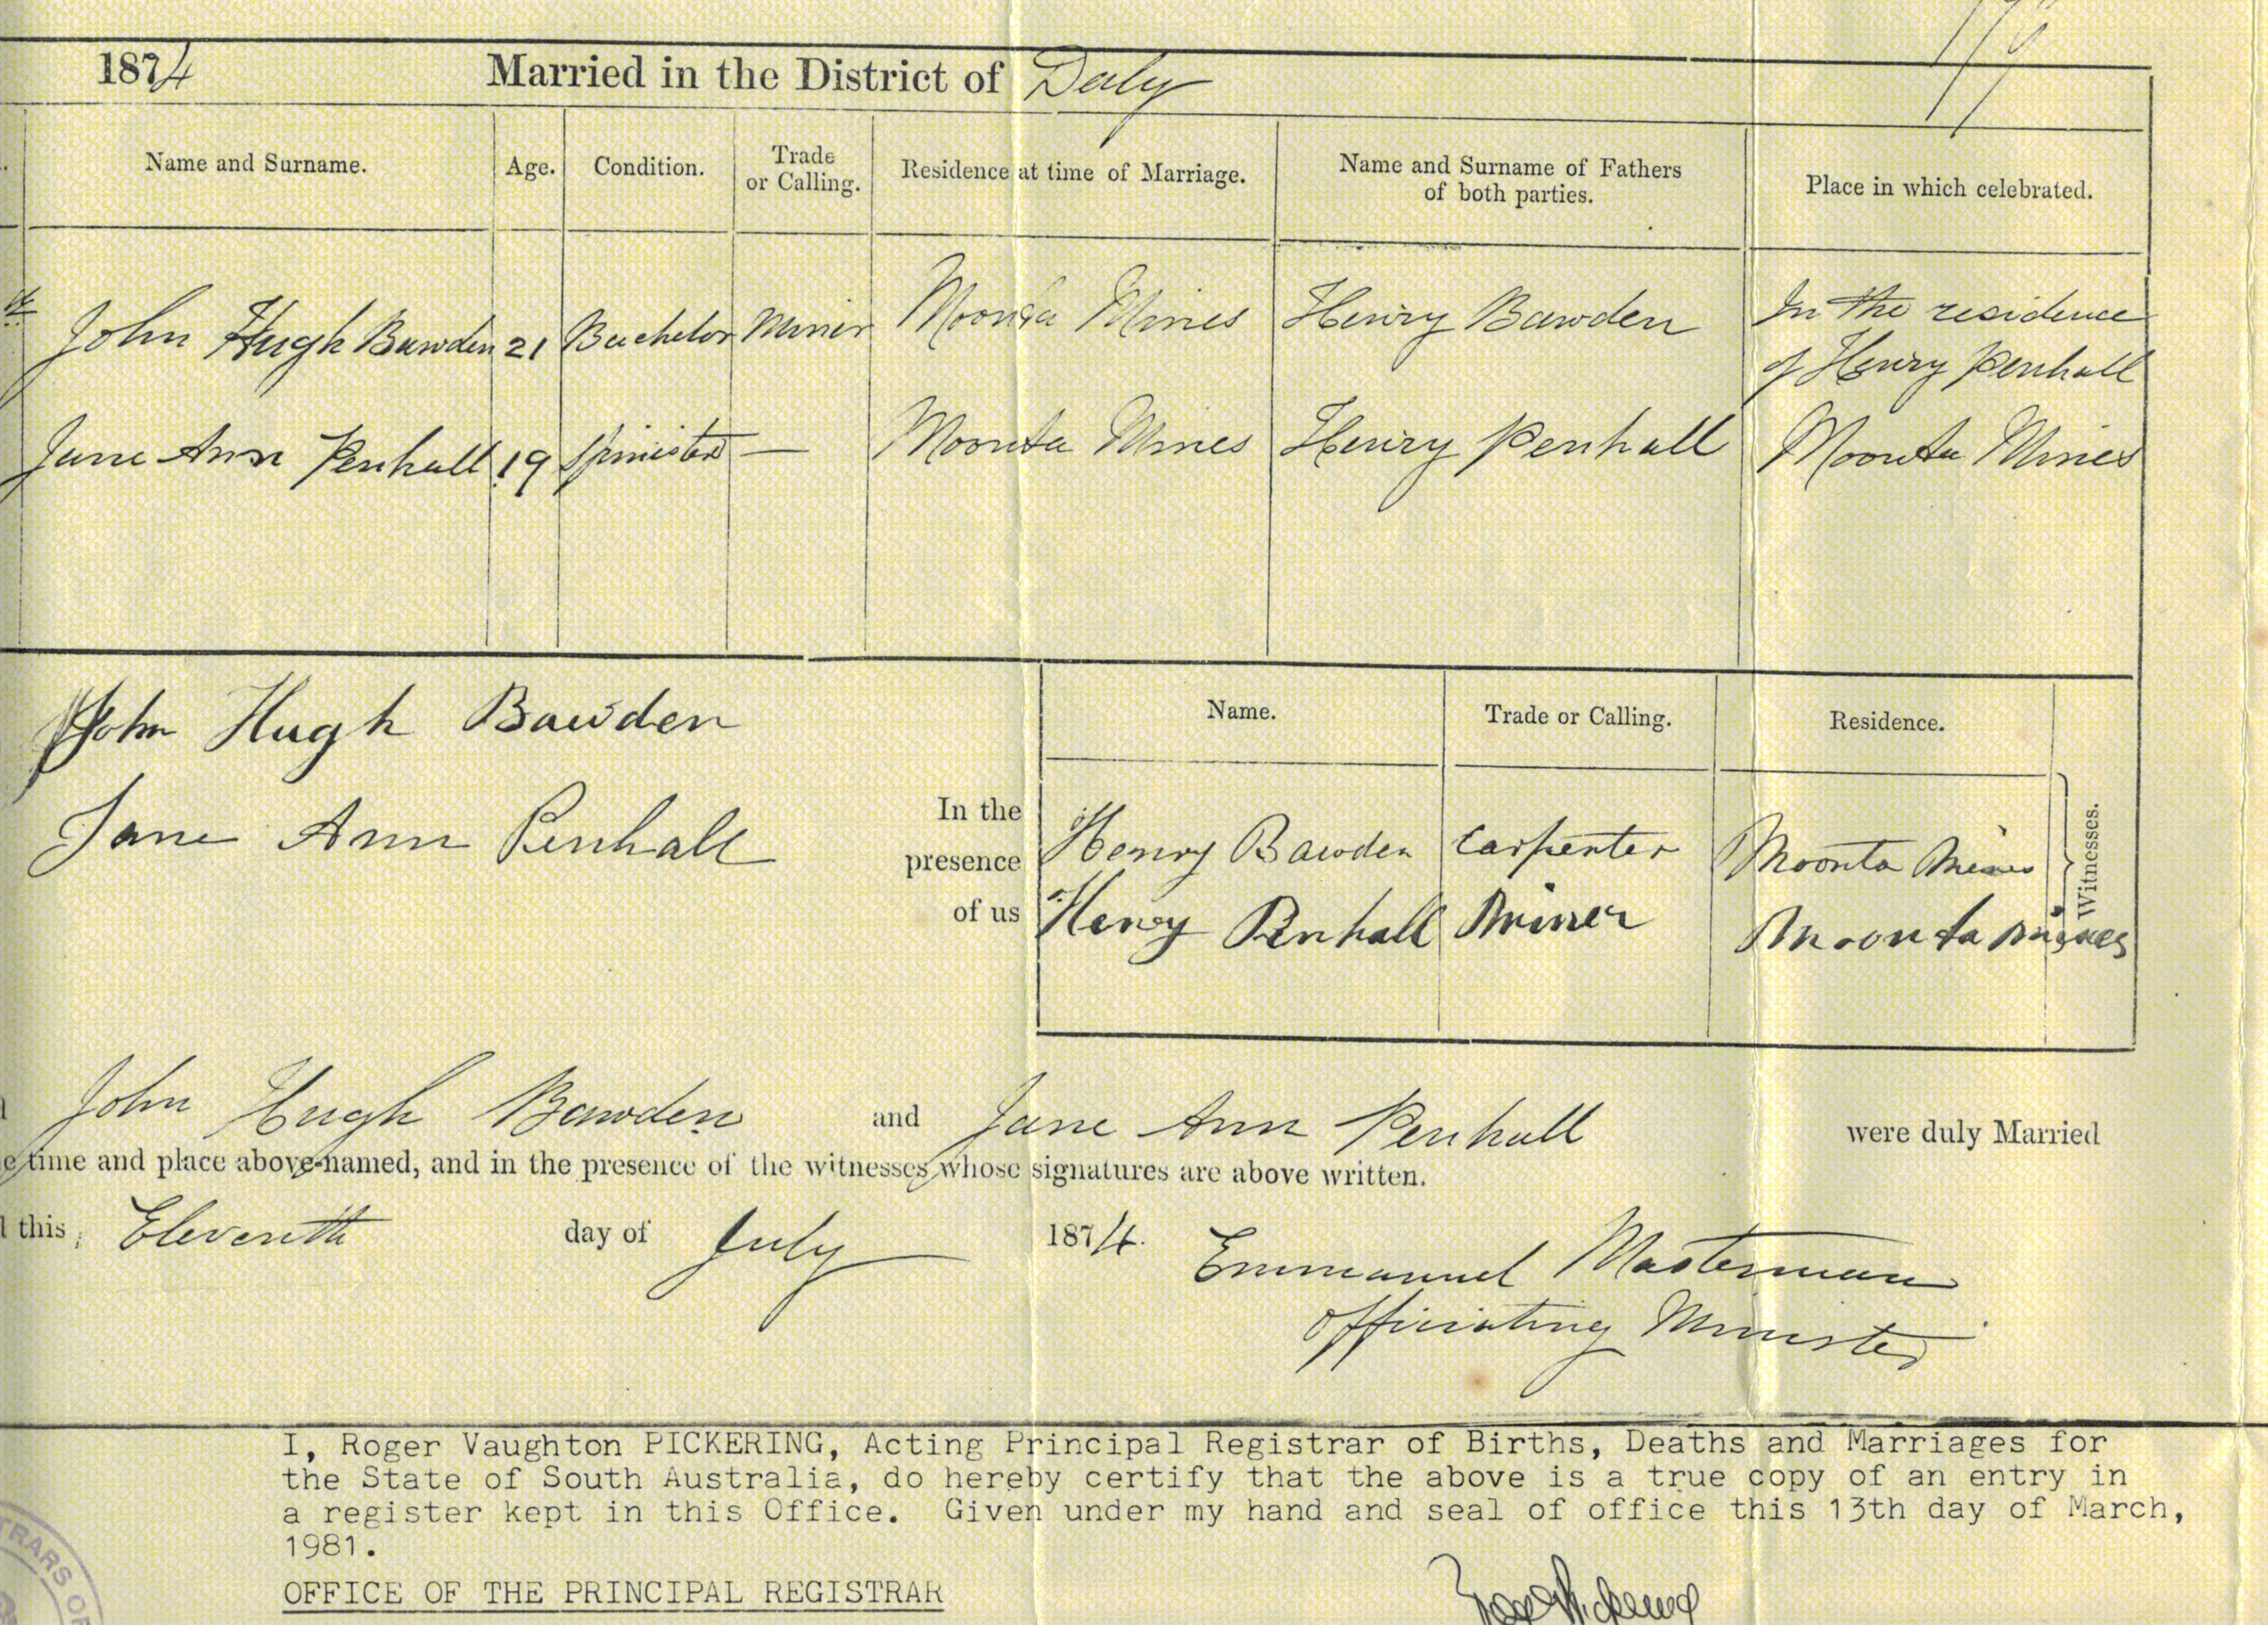 1874 Married in the District of Daly
Name and Surname. Age. Condition. Trade or Calling. Residence at time of Marriage. Name and Surname of Fathers of both parties. Place in which celebrated.
John Hugh Bawden 21 Bachelor Miner Moonta Mines Henry Bawden In the residence
of Henry Penhall
Jane Ann Penhall 19 Spinister — Moonta Mines Henry Penhall Moonta Mines
John Hugh Bawden
Jane Ann Penhall
In the
presence
of us
Name. Trade or Calling. Residence.
Henry Bawden Carpenter Moonta Mines
Henry Penhall Miner Moonta Mines
Witnesses.
John Hugh Bawden and Jane Ann Penhall were duly Married
e time and place above-named, and in the presence of the witnesses whose signatures are above written.
this Eleventh day of July 1874.
Emmanuel Masterman
Officiating Minister
I, Roger Vaughton PICKERING, Acting Principal Registrar of Births, Deaths and Marriages for
the State of South Australia, do hereby certify that the above is a true copy of an entry in
a register kept in this Office. Given under my hand and seal of office this 13th day of March,
1981.
OFFICE OF THE PRINCIPAL REGISTRAR
TRARS OF